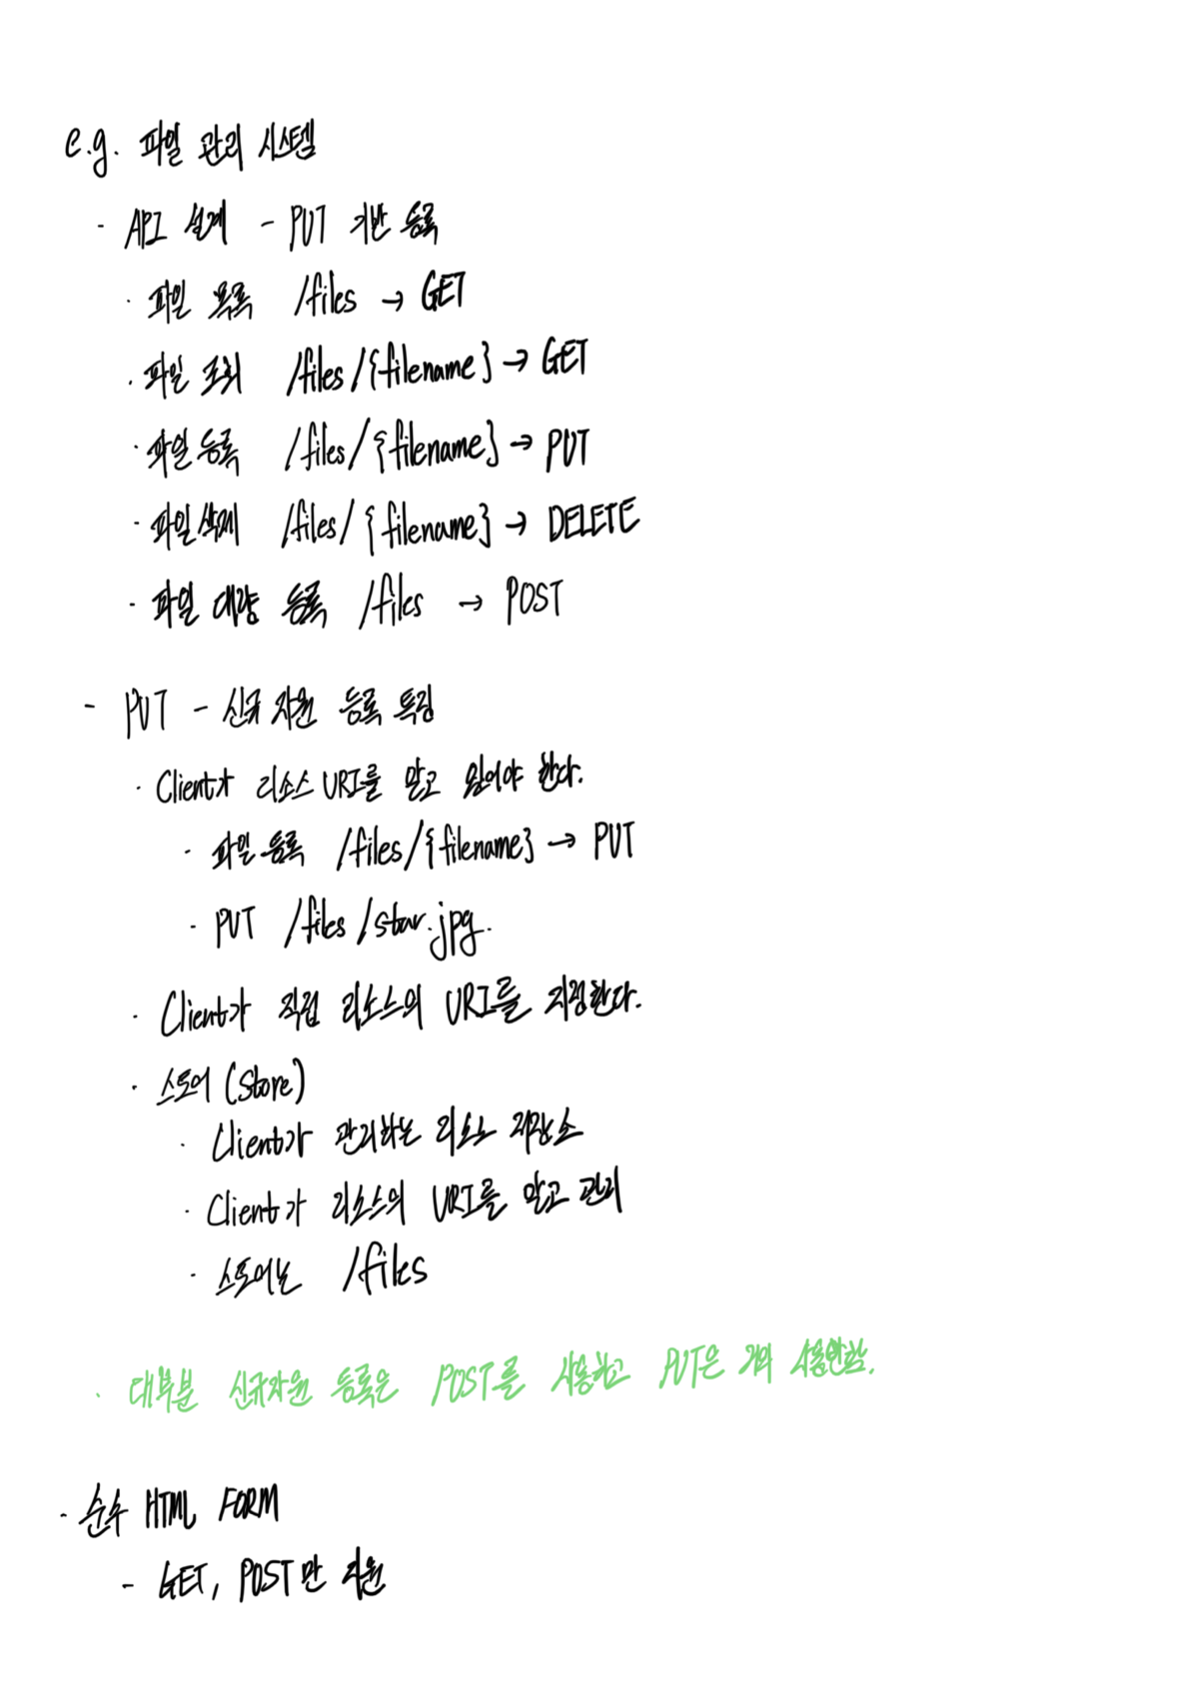 e.g. 파일 관리 시스템
- API 설계 - PUT 기반 등록
· 파일 목록 /files → GET
· 파일 조회 /files/{filename} → GET
· 파일 등록 /files/{filename} → PUT
· 파일 삭제 /files/{filename} → DELETE
· 파일 대량 등록 /files → POST
- PUT - 신규 자원 등록 특징
· Client가 리소스 URI를 알고 있어야 한다.
· 파일 등록 /files/{filename} → PUT
· PUT /files/star.jpg.
· Client가 직접 리소스의 URI를 지정한다.
· 스토어 (Store)
· Client가 관리하는 리소스 저장소
· Client가 리소스의 URI를 알고 관리
· 스토어는 /files
· 대부분 신규자원 등록은 POST를 사용하고 PUT은 거의 사용안함.
· 순수 HTML FORM
- GET, POST만 지원